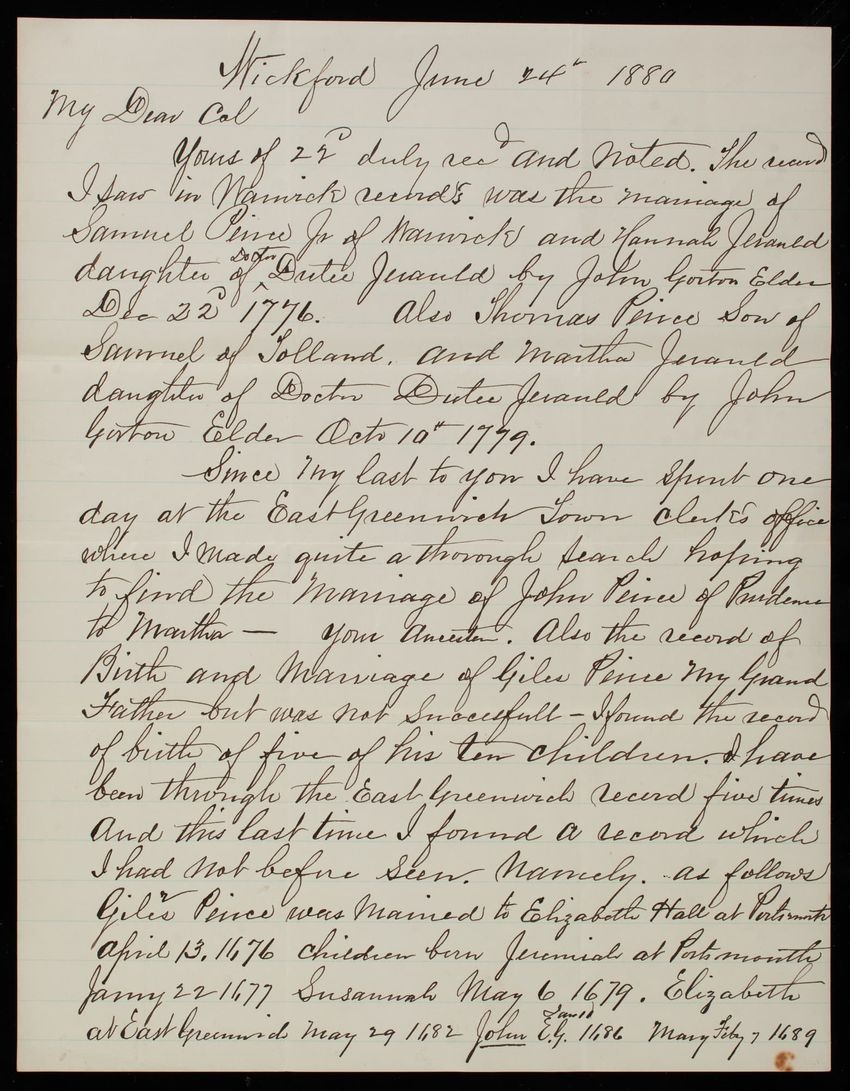 Wickford June 24th 1880
My Dear Col
Yours of 22d duly recd and Noted. The record
I saw in Warwick record's was the marriage of
Samuel Peirce Jr of Warwick and Hannah Jerauld
daughter of Doctor Dutee Jerauld by John Gorton Elder
Dec 22d 1776. Also Thomas Peirce Son of
Samuel of Tolland. and Martha Jerauld
daughter of Doctor Dutee Jerauld by John
Gorton Elder Octo 10th 1779.
Since My last to you I have spent one
day at the East Greenwich Town clerk's office
where I made quite a thorough search hoping
to find the Marriage of John Peirce of Prudence
to Martha — your Ancestor. Also the record of
Birth and Marriage of Giles Peirce My Grand
Father but was not Successfull - I found the record
of birth of five of his ten children. I have
been through the East Greenwich record five times
And this last time I found a record which
I had not before seen. Namely. as follows
Giles Peirce was Married to Elizabeth Hall at Portsmouth
April 13. 1676 children born Jeremiah at Portsmouth
Janry 22 1677 Susannah May 6 1679. Elizabeth
at East Greenwich May 29 1682 John E.G. 1686 Mary Feby 7 1689